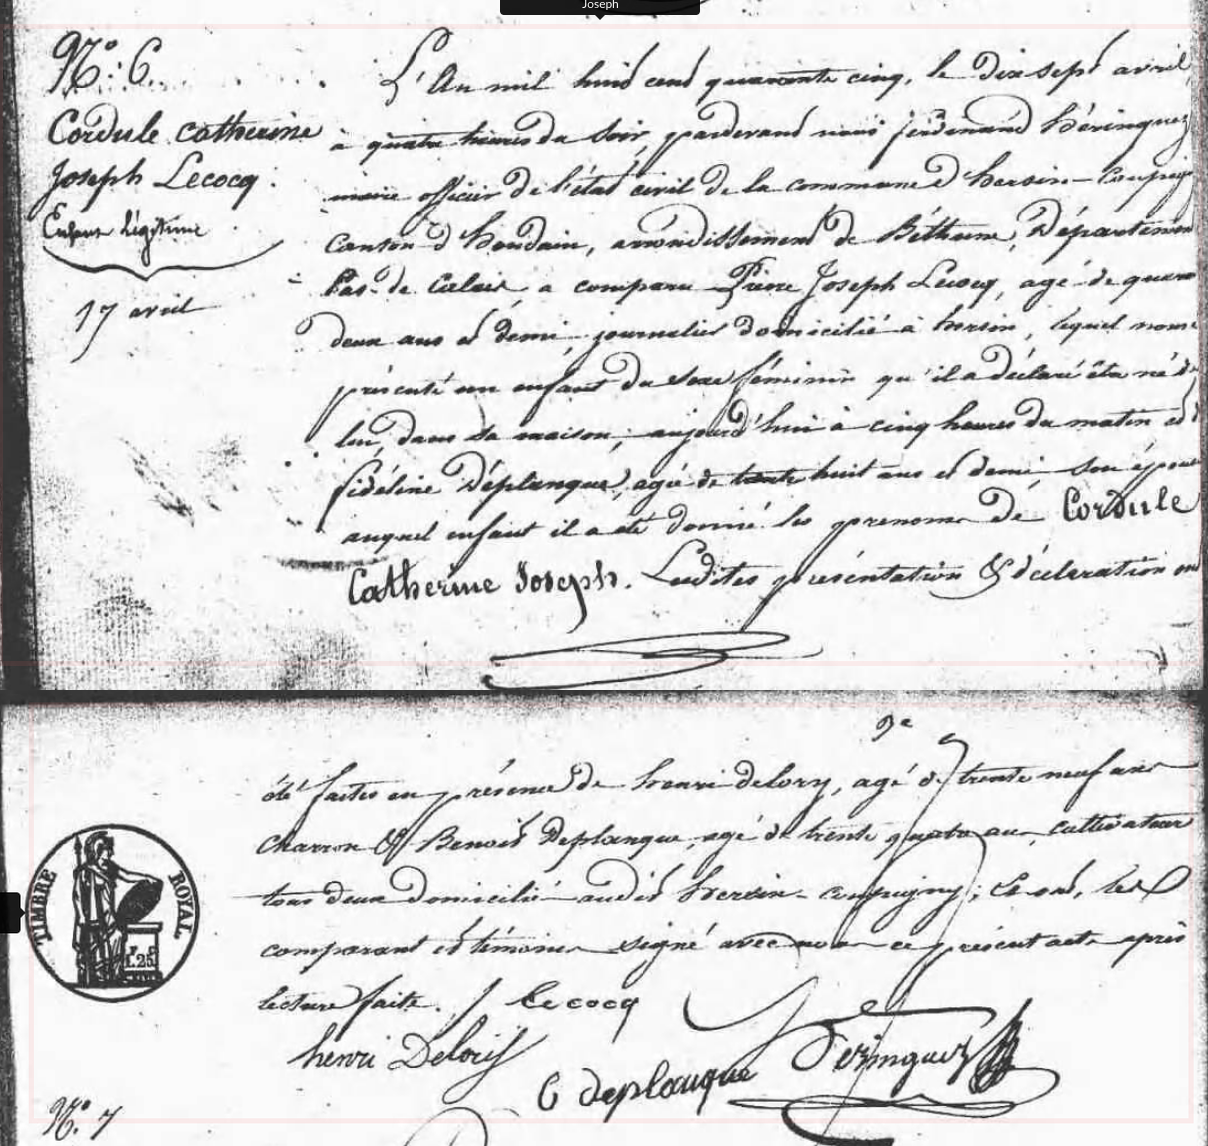 Joseph
N.º 6.
Cordule catherine
Joseph Lecocq.
Enfant légitime
17 avril
L'An mil huit cent quarante cinq, le dix sept avril
à quatre heures du soir, pardevant nous ferdinand Héringuez
maire officier de l'état civil de la commune d'hersin-Coupigny
canton d'houdain, arrondissement de Béthune, Département
Pas-de Calais, a comparu Pierre Joseph Lecocq, agé de quaran
deux ans et demi, journalier domicilié à hersin, lequel nous
présenté un enfant du sexe féminin qu'il a déclaré être né d
lui, dans sa maison, aujourd'hui à cinq heures du matin et d
fidéline Déplanque, agée de trente huit ans et demi, son épouse
auquel enfant il a été donné les prenoms de Cordule
Catherine Joseph. Lesdites présentation & déclaration on
2e
été faites en présence de henri delory, agé de trente neuf ans
charron & Benoit Deplanque, agé de trente quatre ans, cultivateur
tous deux domiciliés audit hersin-coupigny; Et ont, les
comparant et témoins signé avec nous le présent acte après
lecture faite. J Lecocq
henri Deloris
deplanque Heringuez
TIMBRE ROYAL
1.25
N.º 7